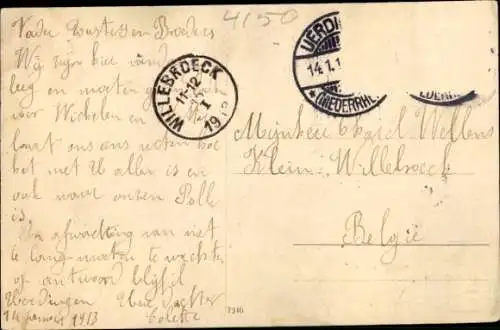 4150
Vader Zusters en Broeders
Wij zijn hier
leeg en moeten
over Wichelen en
laat ons eens weten hoe
het met U allen is en
ook naar onzen Polle
is.
In afwachting van niet
te lang moeten te wachten
op antwoord blijf ik
Uerdingen Uwe Dochter
14 januari 1913 Colette
WILLEBROECK
11-12
I
19
UERDI
14.1.1
* (NIEDERRHE
EDERRH
Mijnheer Karel Wellens
Klein-Willebroeck
België